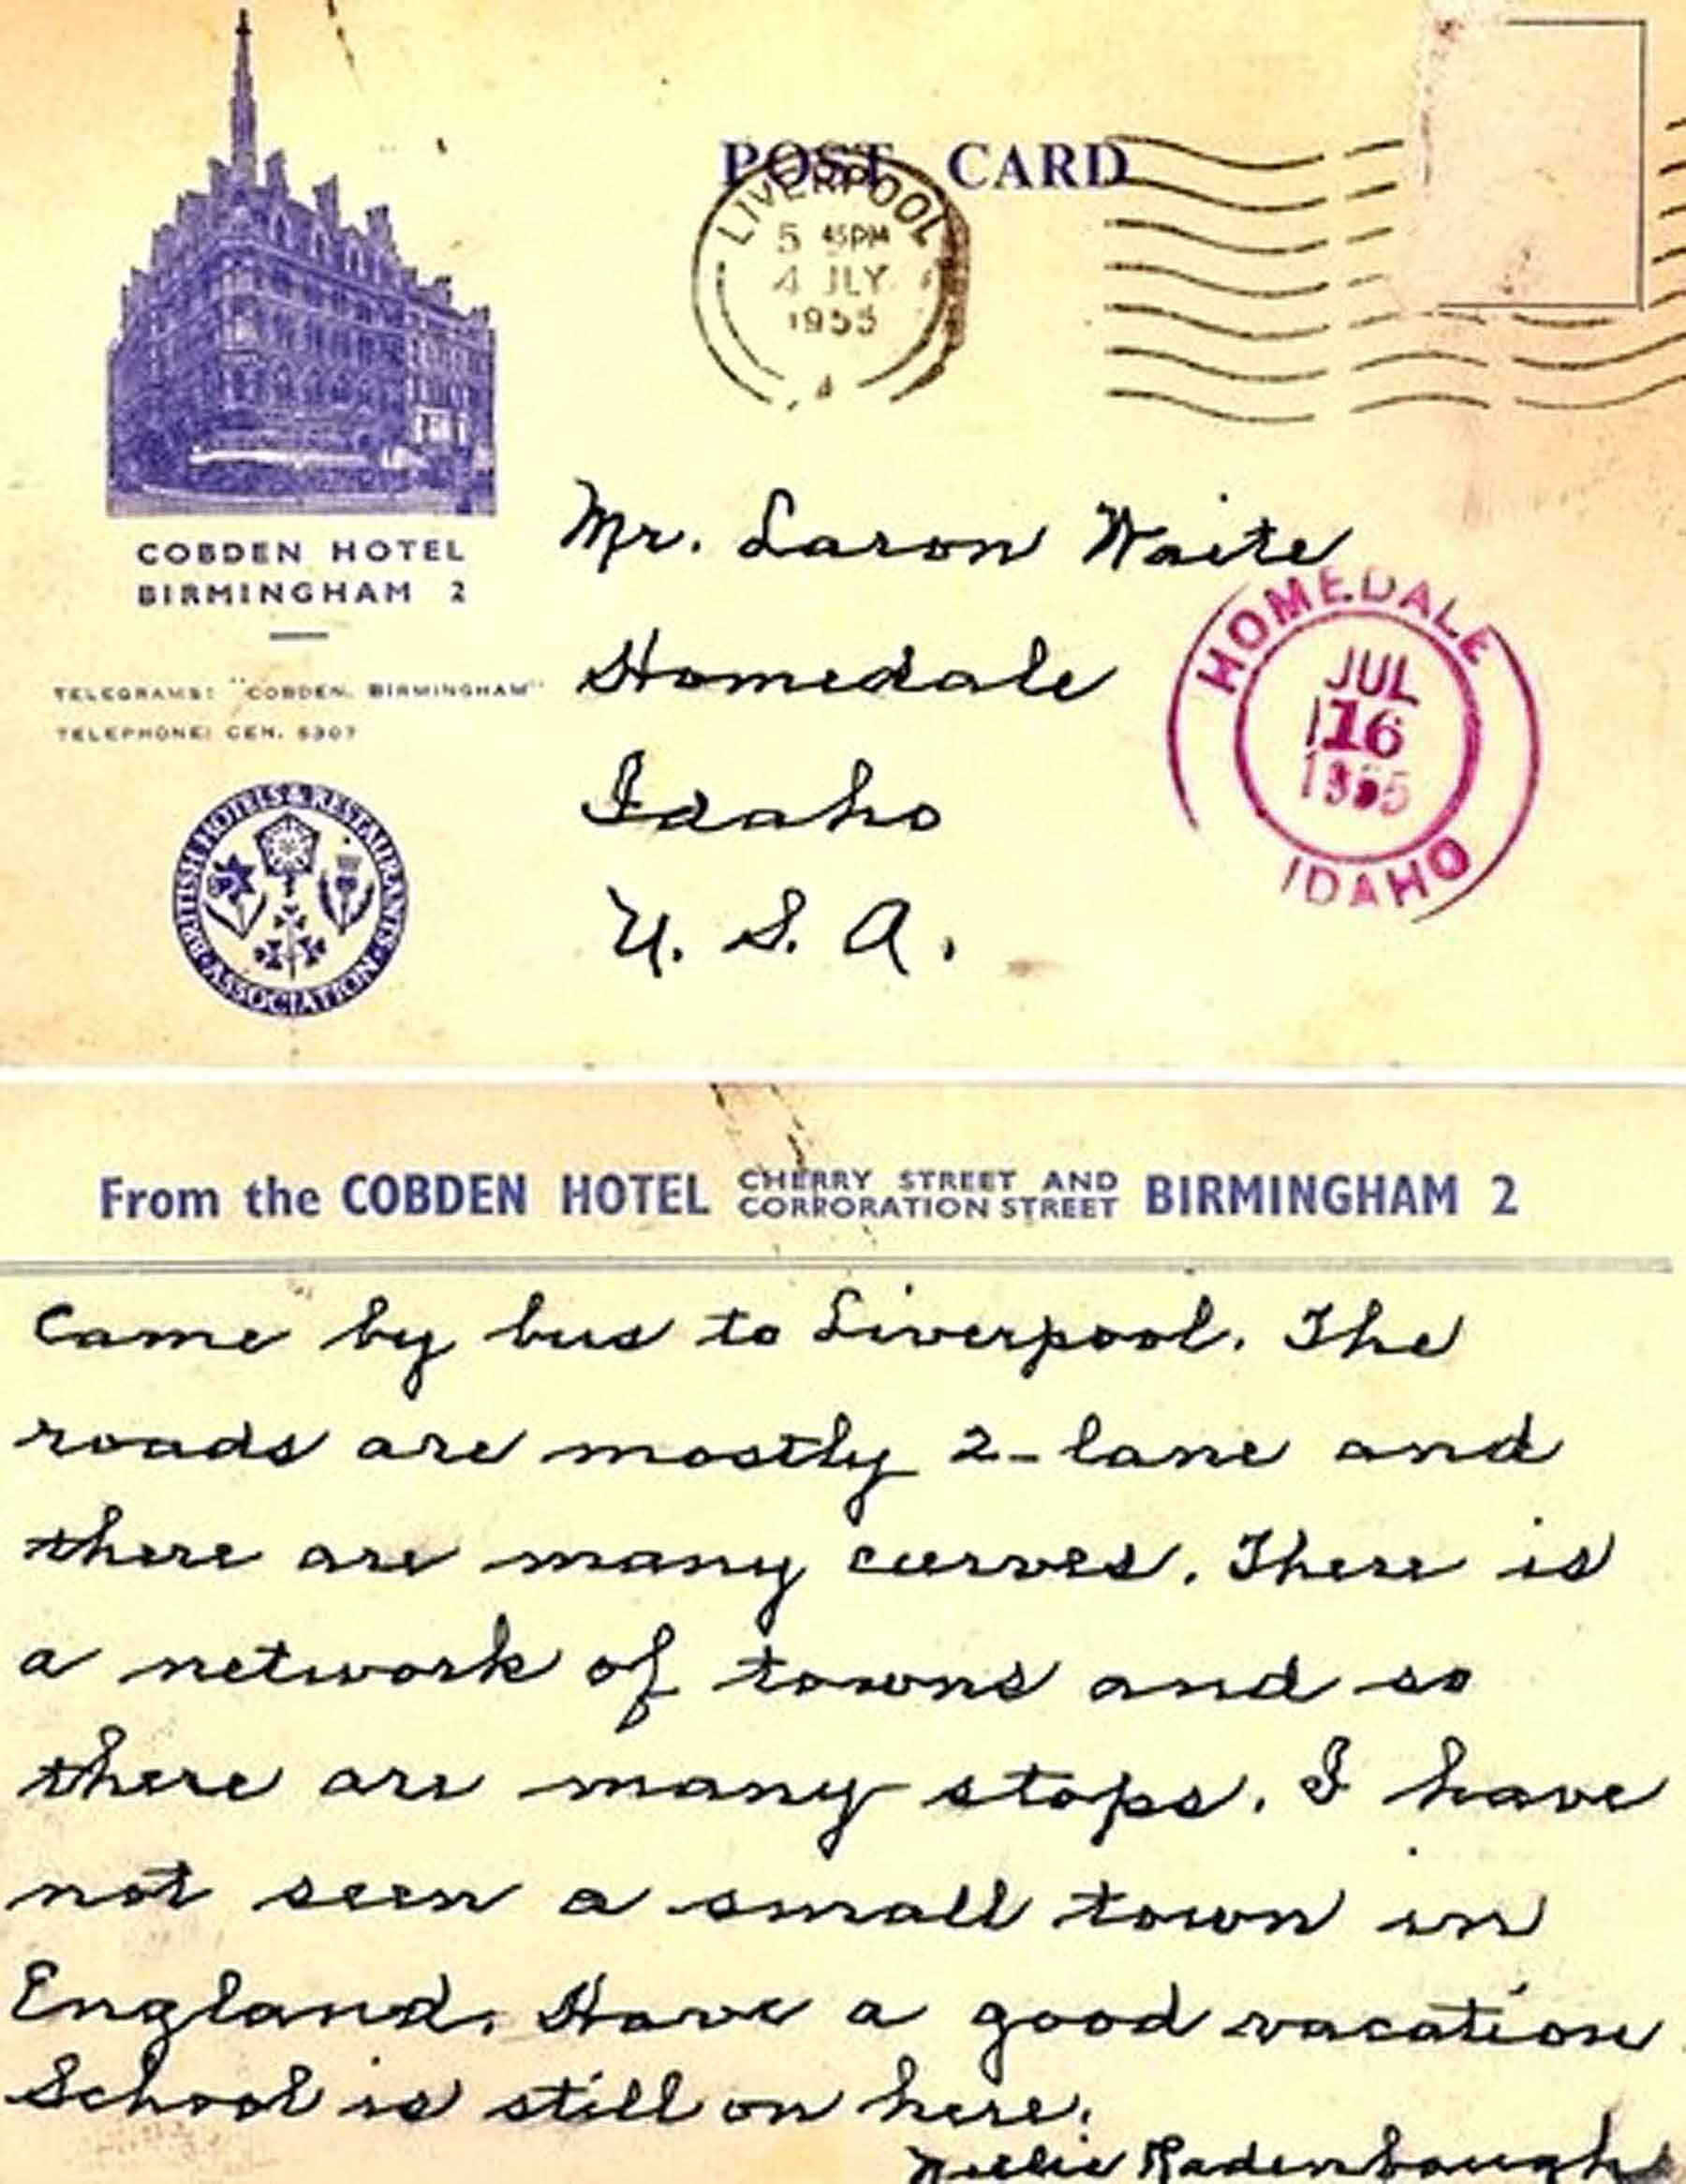 POST CARD
LIVERPOOL
5 45PM
4 JLY
1955
COBDEN HOTEL
BIRMINGHAM 2
TELEGRAMS: "COBDEN, BIRMINGHAM"
TELEPHONE: CEN. 6307
BRITISH HOTELS & RESTAURANTS ASSOCIATION
Mr. Laron Waite
Homedale
Idaho
U. S. A.
HOMEDALE
JUL
16
1955
IDAHO
From the COBDEN HOTEL CHERRY STREET AND CORPORATION STREET BIRMINGHAM 2
Came by bus to Liverpool. The
roads are mostly 2-lane and
there are many curves. There is
a network of towns and so
there are many stops. I have
not seen a small town in
England. Have a good vacation
School is still on here.
Nellie Radenbaugh